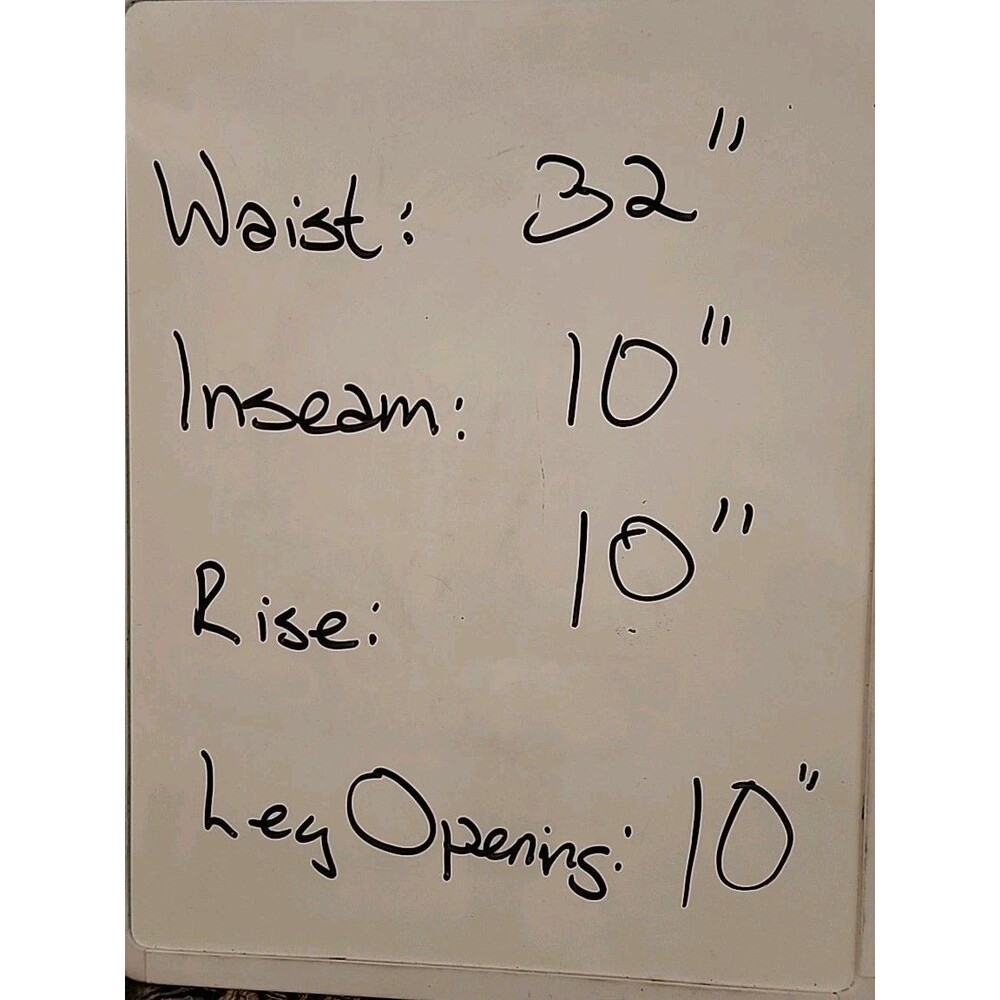 Waist: 32"
Inseam: 10"
Rise: 10"
Leg Opening: 10"